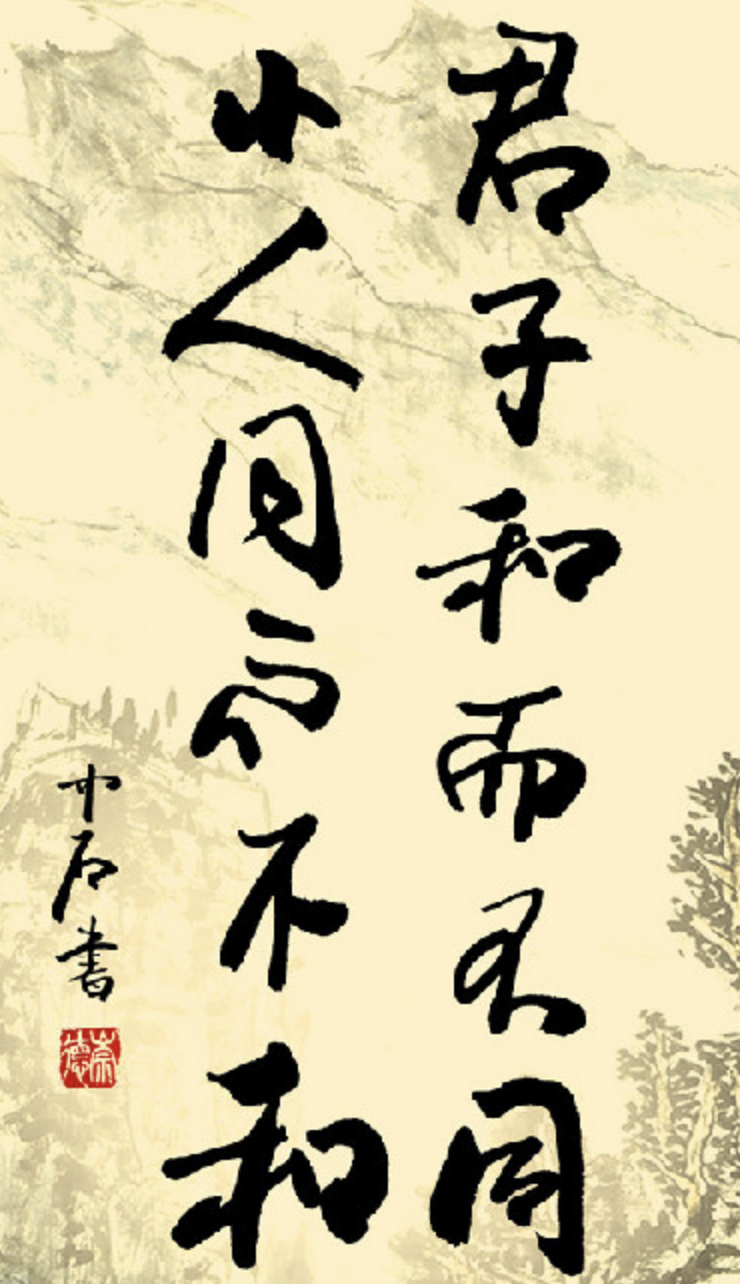 君子和而不同
小人同而不和
中石書
崇德